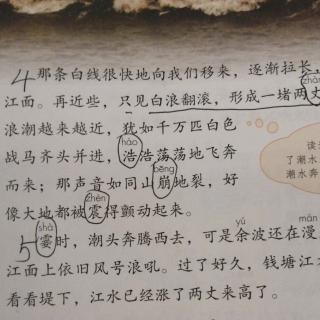 4那条白线很快地向我们移来，逐渐拉长，
zhàn
江面。再近些，只见白浪翻滚，形成一堵两丈
浪潮越来越近，犹如千万匹白色
hào
战马齐头并进，浩浩荡荡地飞奔
bēng
而来；那声音如同山崩地裂，好
zhèn
像大地都被震得颤动起来。
shà yú màn
5霎时，潮头奔腾西去，可是余波还在漫
江面上依旧风号浪吼。过了好久，钱塘江
看看堤下，江水已经涨了两丈来高了。
读
了潮水
潮水奔